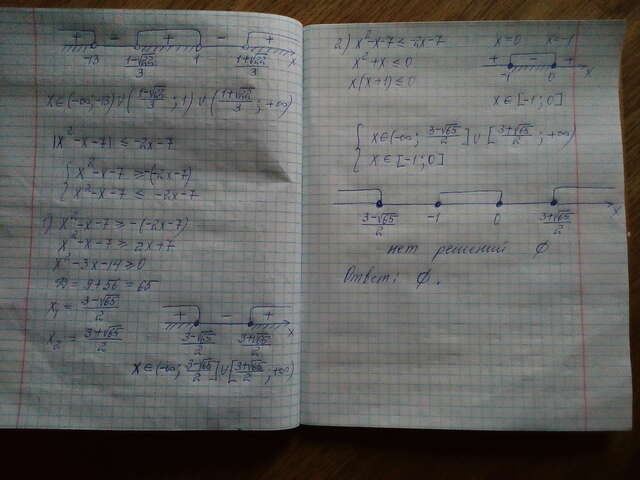 + − + − +
-13 (1-√22)/3 1 (1+√22)/3 x
x∈(-∞;-13)∪((1-√22)/3;1)∪((1+√22)/3;+∞)
|x²-x-7| ≤ -2x-7
{ x²-x-7 ≥ -(-2x-7)
{ x²-x-7 ≤ -2x-7
1) x²-x-7 ≥ -(-2x-7)
x²-x-7 ≥ 2x+7
x²-3x-14 ≥ 0
D = 9+56 = 65
x₁ = (3-√65)/2
x₂ = (3+√65)/2
+ − +
(3-√65)/2 (3+√65)/2 x
x∈(-∞;(3-√65)/2]∪[(3+√65)/2;+∞)
2) x²-x-7 ≤ -2x-7
x²+x ≤ 0
x(x+1) ≤ 0
x=0 x=-1
+ − +
-1 0 x
x∈[-1;0]
{ x∈(-∞;(3-√65)/2]∪[(3+√65)/2;+∞)
{ x∈[-1;0]
(3-√65)/2 -1 0 (3+√65)/2 x
нет решений ∅
Ответ: ∅.